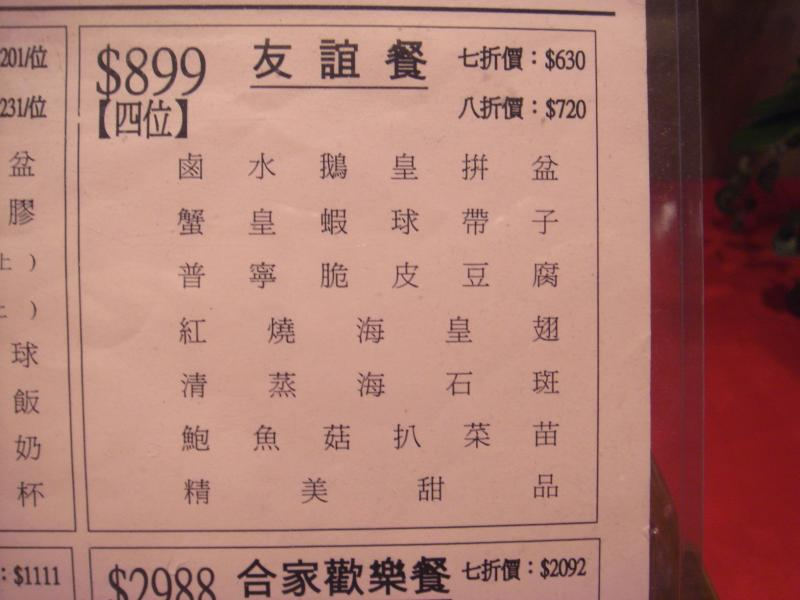 201/位
231/位
盆
膠
上 )
上 )
球
飯
奶
杯
: $1111
$899 友誼餐 七折價：$630
【四位】 八折價：$720
鹵水鵝皇拼盆
蟹皇蝦球帶子
普寧脆皮豆腐
紅燒海皇翅
清蒸海石斑
鮑魚菇扒菜苗
精美甜品
$2988 合家歡樂餐 七折價：$2092